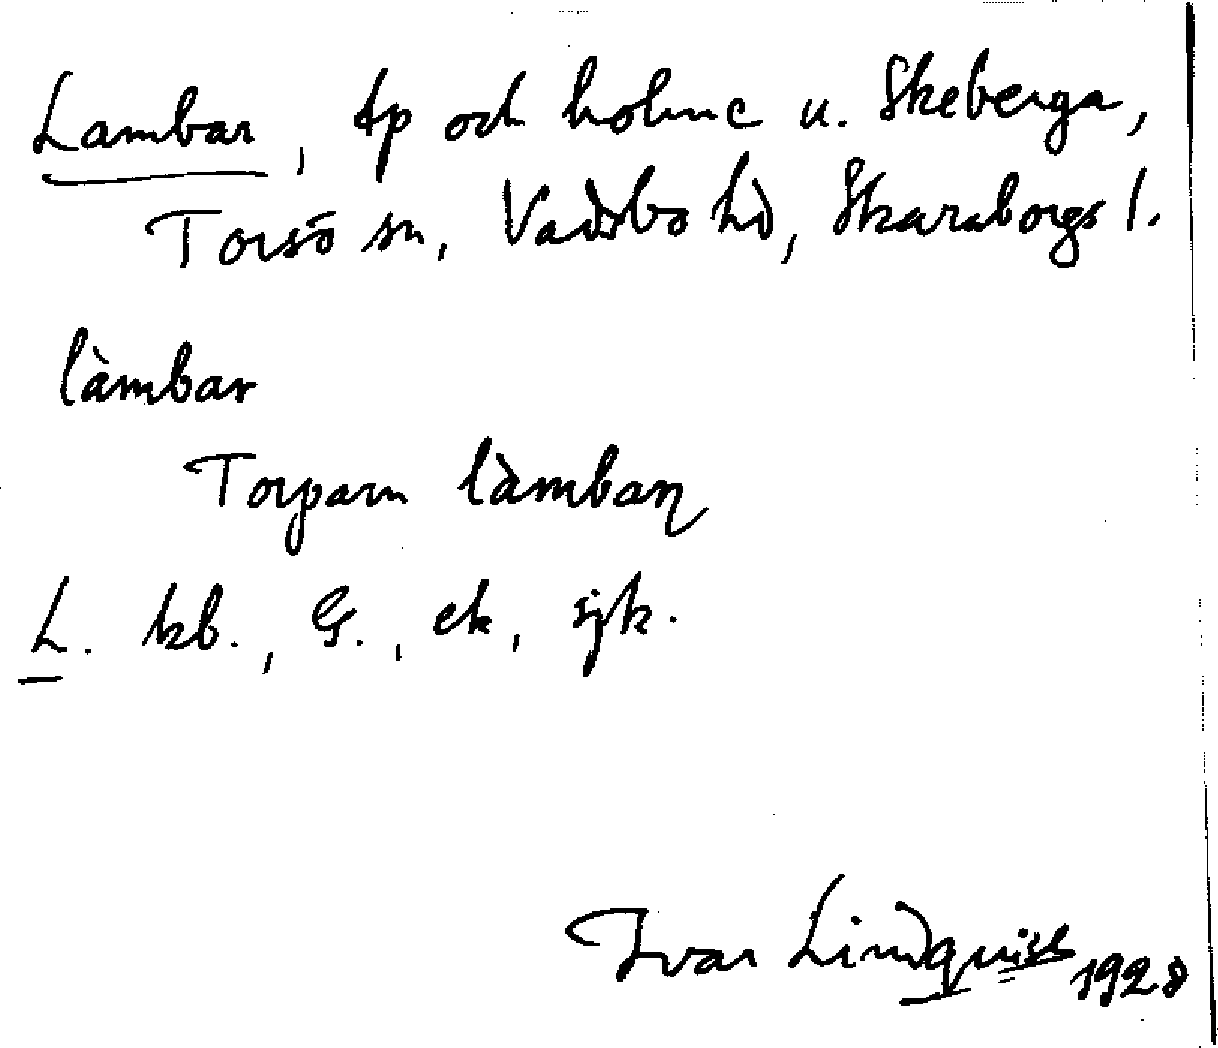 Lambar, tp och holme u. Skeberga,
Torsö sn, Vadsbo hd, Skaraborgs l.
làmbar
Torparn làmban
L. kb., G., ek, sjk.
Ivar Lindquist 1928